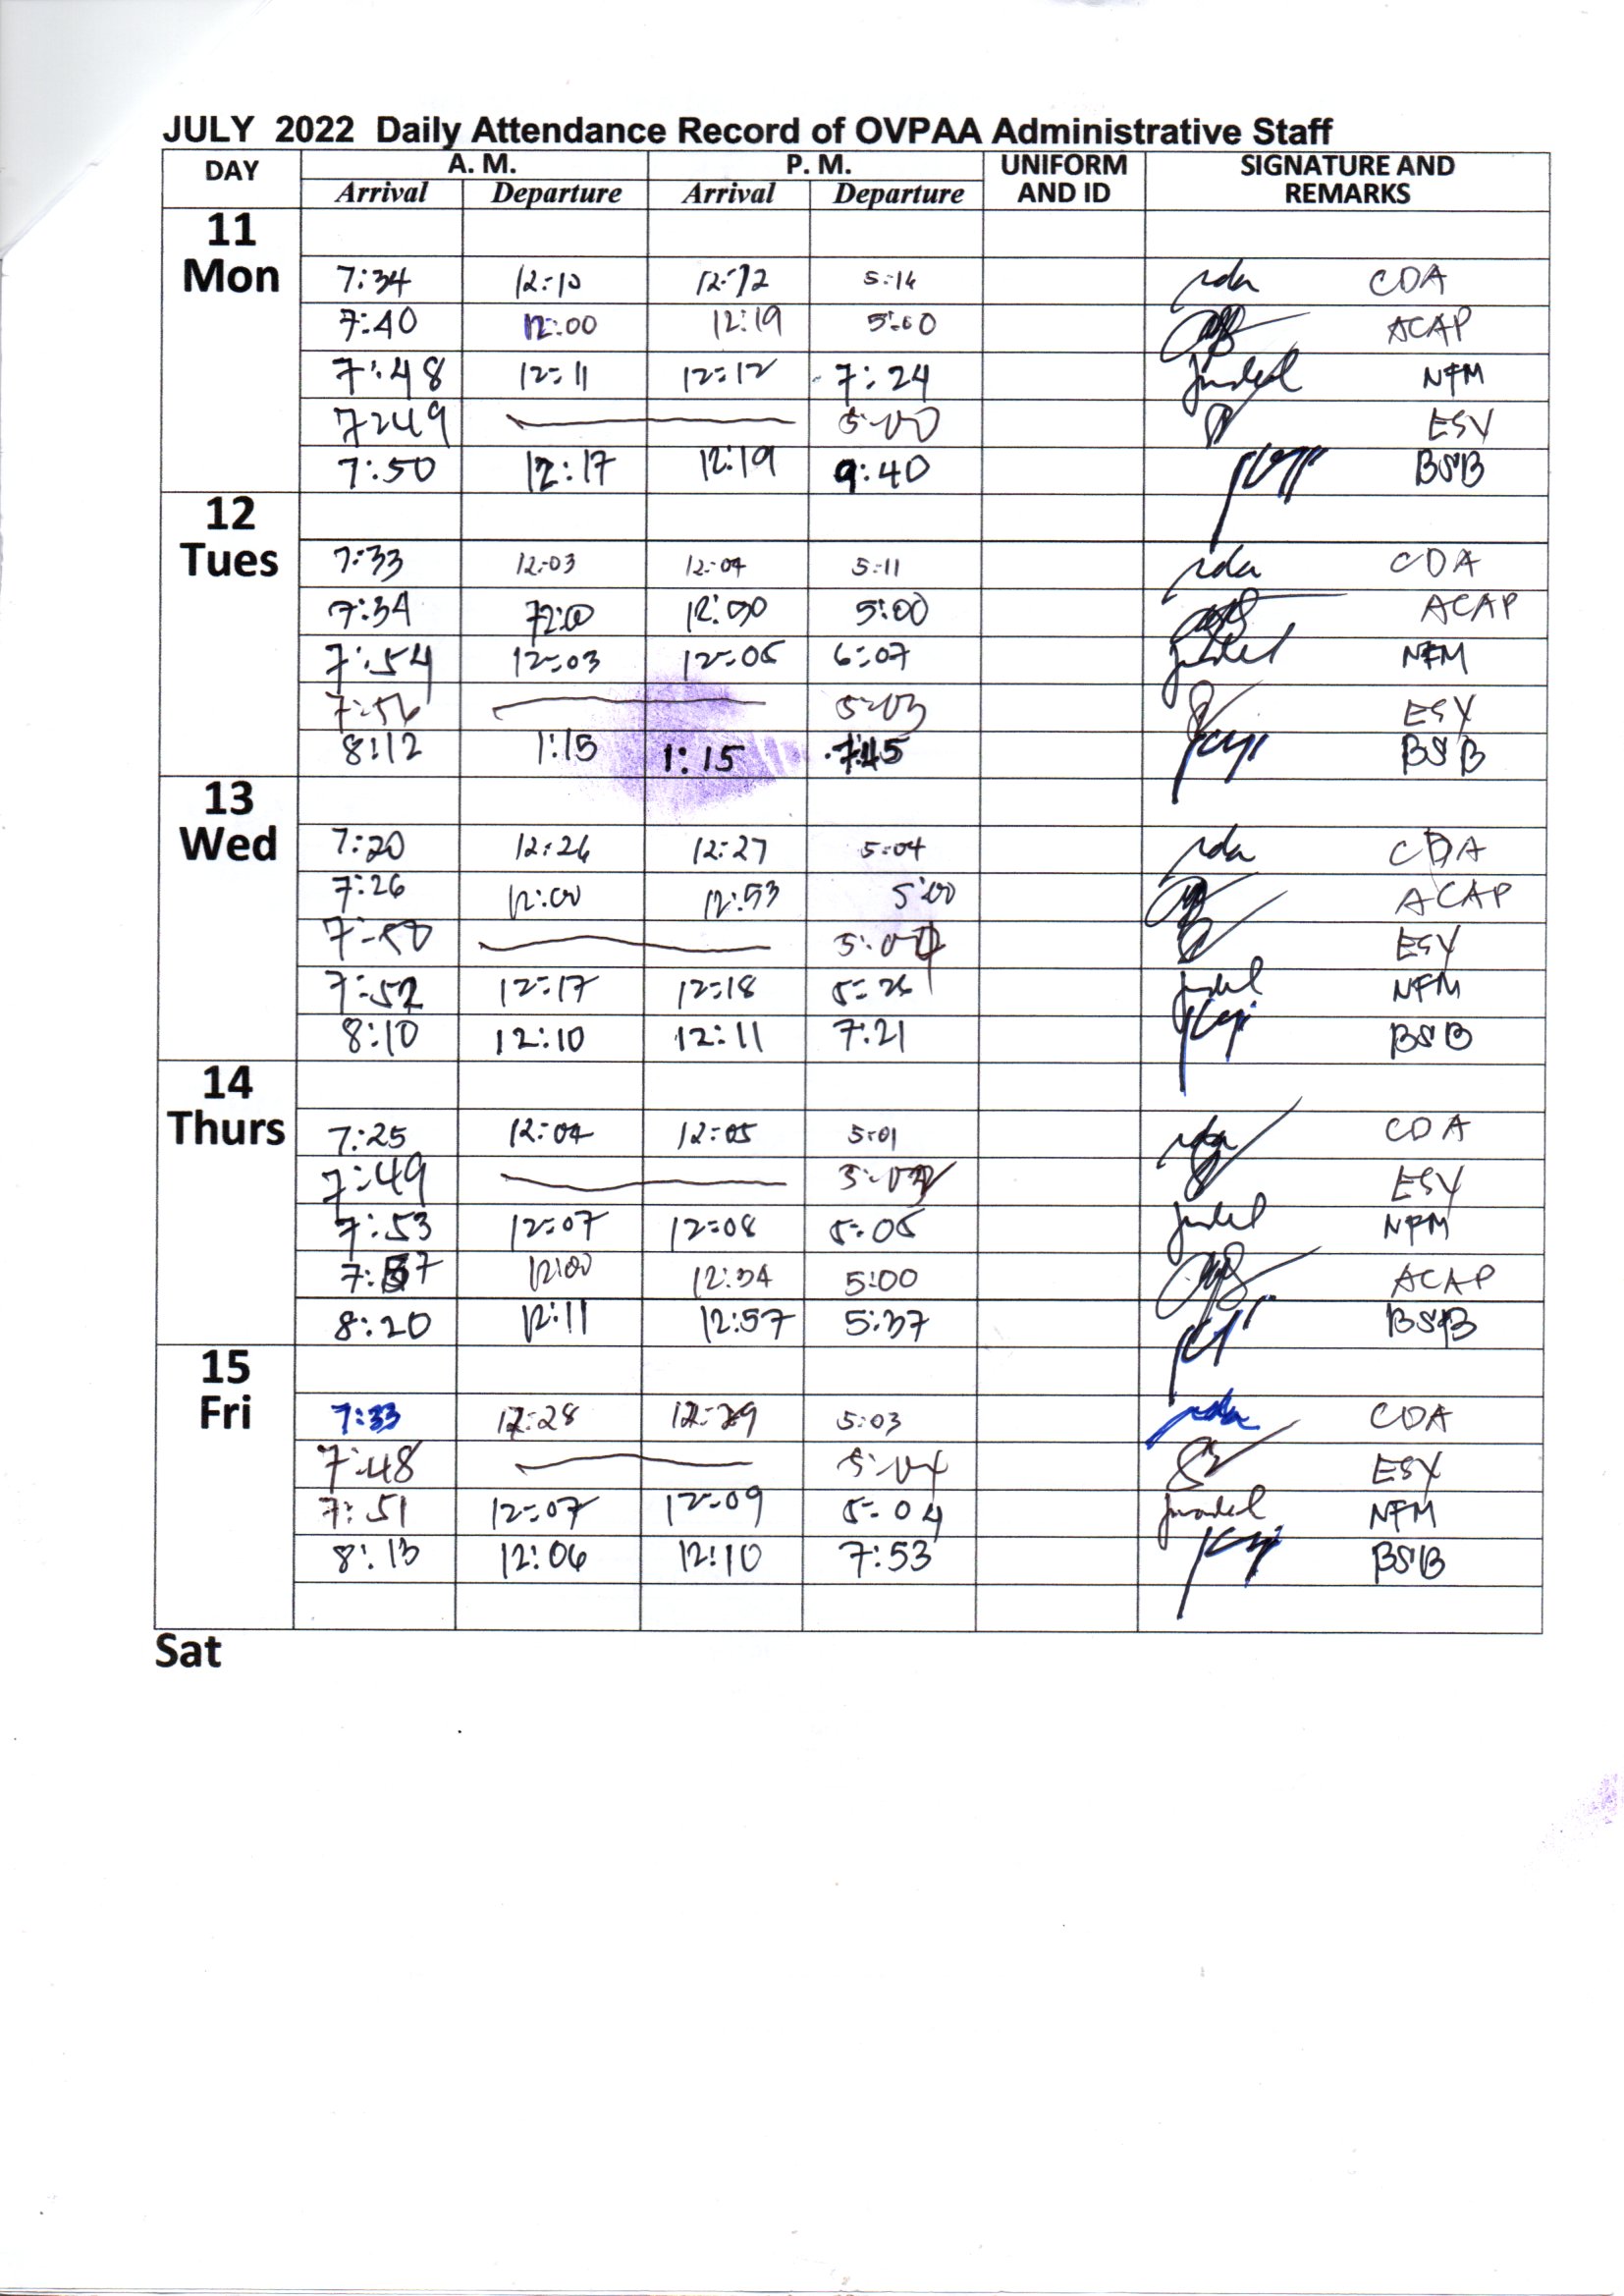 JULY 2022 Daily Attendance Record of OVPAA Administrative Staff
DAY A. M. P. M. UNIFORM AND ID SIGNATURE AND REMARKS
Arrival Departure Arrival Departure
11 Mon
7:34 12:10 12:12 5:14 CDA
7:40 12:00 12:19 5:00 ACAP
7:48 12:11 12:12 7:24 NFM
7:49 5:00 ESY
7:50 12:17 12:19 9:40 BSB
12 Tues
7:33 12:03 12:04 5:11 CDA
7:34 12:00 5:00 ACAP
7:54 12:03 12:05 6:07 NFM
7:56 5:03 ESY
8:12 1:15 1:15 7:45 BSB
13 Wed
7:20 12:26 12:27 5:04 CDA
7:26 12:00 12:53 5:00 ACAP
7:50 ESY
7:52 12:17 12:18 5:26 NFM
8:10 12:10 12:11 7:21 BSB
14 Thurs
7:25 12:04 12:05 5:01 CDA
7:49 ESY
7:53 12:07 12:08 5:05 NFM
7:57 12:00 12:34 5:00 ACAP
8:20 12:11 12:57 5:37 BSB
15 Fri
7:33 12:28 12:29 5:03 CDA
7:48 5:04 ESY
7:51 12:07 12:09 5:04 NFM
8:13 12:06 12:10 7:53 BSB
Sat